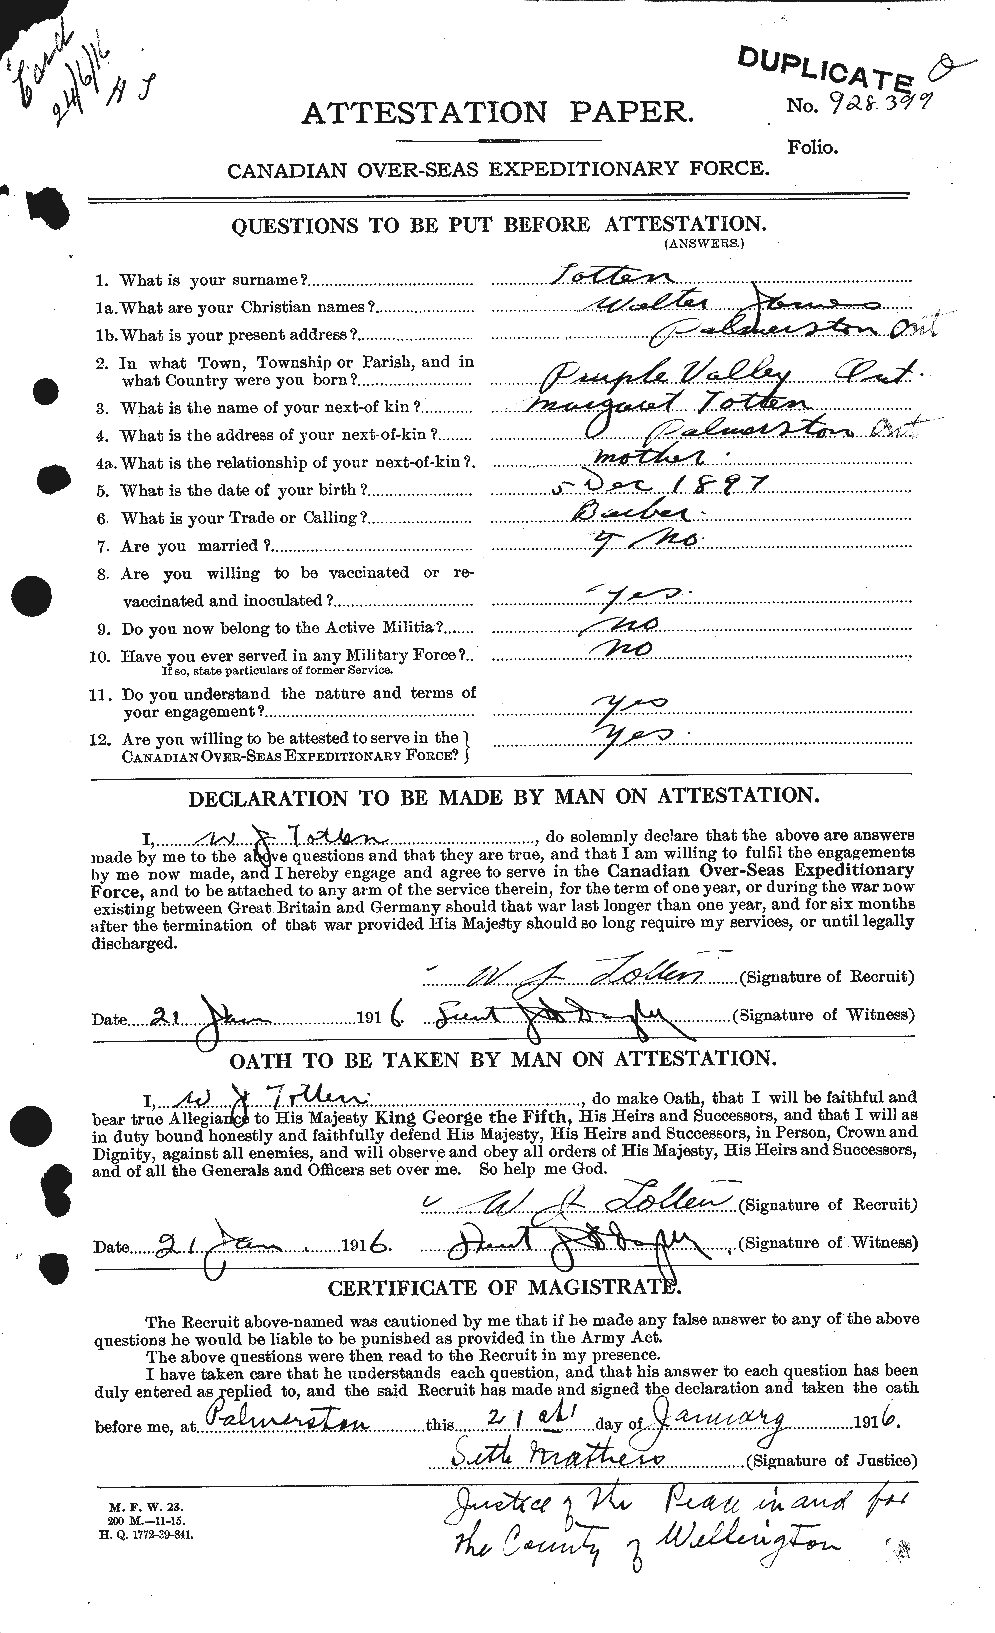 Card
24/6/16
DUPLICATE
ATTESTATION PAPER.
No. 928399
Folio.
CANADIAN OVER-SEAS EXPEDITIONARY FORCE.
QUESTIONS TO BE PUT BEFORE ATTESTATION.
(ANSWERS.)
1. What is your surname? Totten
1a. What are your Christian names? Walter James
1b. What is your present address? Palmerston Ont
2. In what Town, Township or Parish, and in
what Country were you born? Purple Valley Ont.
3. What is the name of your next-of kin? Margaret Totten
4. What is the address of your next-of-kin? Palmerston Ont
4a. What is the relationship of your next-of-kin? mother.
5. What is the date of your birth? 5 Dec 1897
6. What is your Trade or Calling? Barber.
7. Are you married? No.
8. Are you willing to be vaccinated or re-
vaccinated and inoculated? yes.
9. Do you now belong to the Active Militia? no
10. Have you ever served in any Military Force? no
If so, state particulars of former Service.
11. Do you understand the nature and terms of
your engagement? yes
12. Are you willing to be attested to serve in the
CANADIAN OVER-SEAS EXPEDITIONARY FORCE? yes.
DECLARATION TO BE MADE BY MAN ON ATTESTATION.
I, W J Totten, do solemnly declare that the above are answers
made by me to the above questions and that they are true, and that I am willing to fulfil the engagements
by me now made, and I hereby engage and agree to serve in the Canadian Over-Seas Expeditionary
Force, and to be attached to any arm of the service therein, for the term of one year, or during the war now
existing between Great Britain and Germany should that war last longer than one year, and for six months
after the termination of that war provided His Majesty should so long require my services, or until legally
discharged.
W J Totten (Signature of Recruit)
Date 21 Jan 1916 (Signature of Witness)
OATH TO BE TAKEN BY MAN ON ATTESTATION.
I, W J Totten, do make Oath, that I will be faithful and
bear true Allegiance to His Majesty King George the Fifth, His Heirs and Successors, and that I will as
in duty bound honestly and faithfully defend His Majesty, His Heirs and Successors, in Person, Crown and
Dignity, against all enemies, and will observe and obey all orders of His Majesty, His Heirs and Successors,
and of all the Generals and Officers set over me. So help me God.
W J Totten (Signature of Recruit)
Date 21 Jan. 1916. (Signature of Witness)
CERTIFICATE OF MAGISTRATE.
The Recruit above-named was cautioned by me that if he made any false answer to any of the above
questions he would be liable to be punished as provided in the Army Act.
The above questions were then read to the Recruit in my presence.
I have taken care that he understands each question, and that his answer to each question has been
duly entered as replied to, and the said Recruit has made and signed the declaration and taken the oath
before me, at Palmerston this 21st day of January 1916.
Seth Mathers (Signature of Justice)
M. F. W. 23.
200 M.—11-15.
H. Q. 1772-39-841.
Justice of the Peace in and for
the County of Wellington